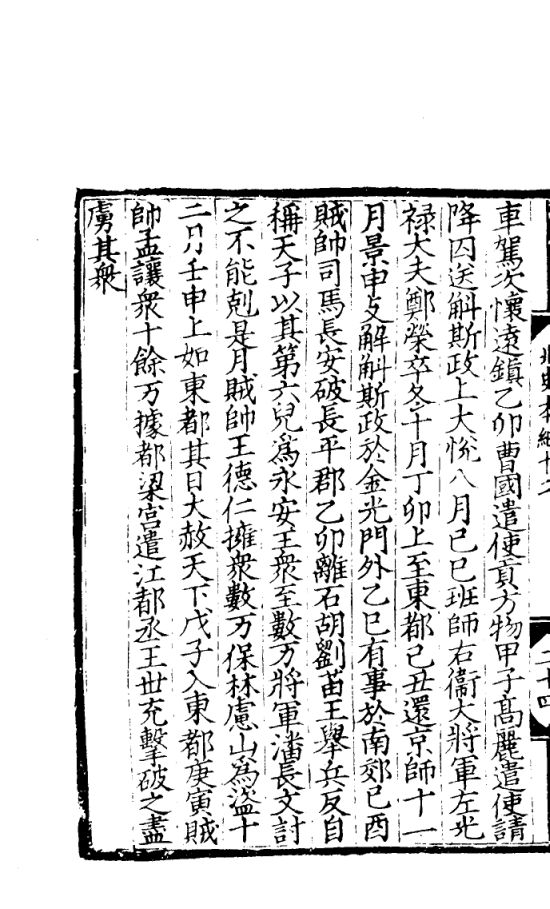 車駕次懷遠鎮乙卯曹國遣使貢方物甲子髙麗遣使請
降囚送斛斯政上大悅八月己巳班師右衞大將軍左光
禄大夫鄭榮卒冬十月丁卯上至東都己丑還京師十一
月景申支解斛斯政於金光門外乙巳有事於南郊己酉
賊帥司馬長安破長平郡乙卯離石胡劉苗王舉兵反自
稱天子以其第六兒爲永安王衆至數万將軍潘長文討
之不能剋是月賊帥王德仁擁衆數万保林慮山爲盜十
二月壬申上如東都其日大赦天下戊子入東都庚寅賊
帥孟讓衆十餘万據都梁宫遣江都丞王世充擊破之盡
虜其衆